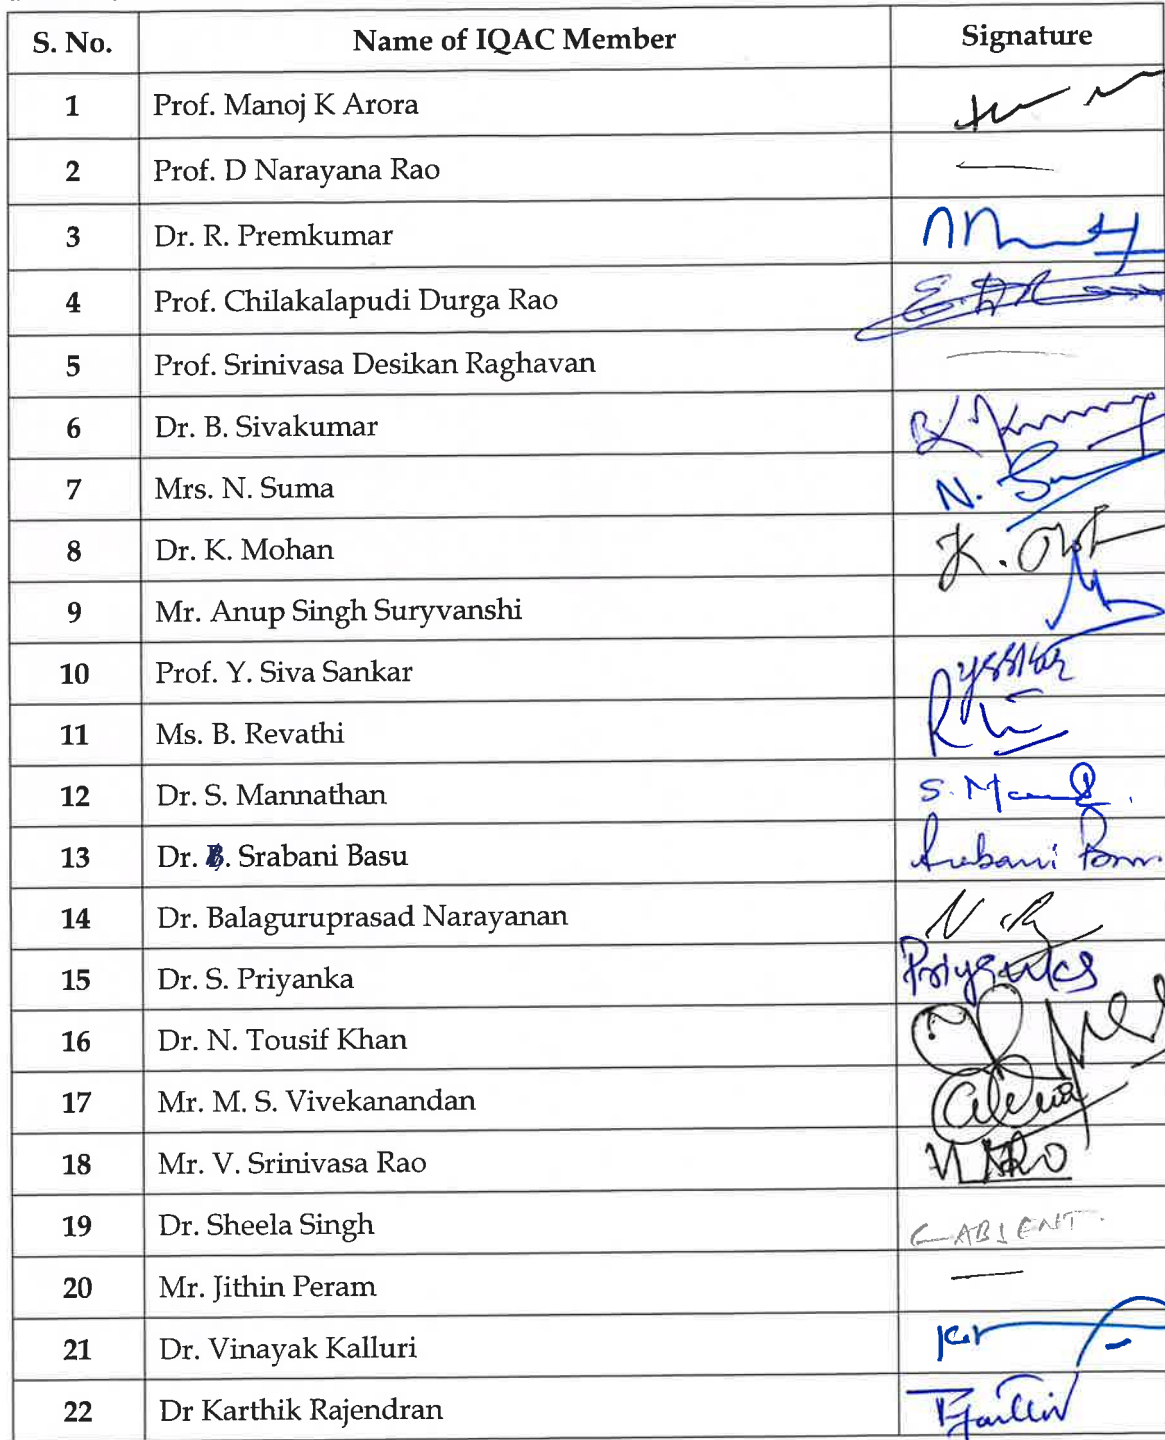 S. No. Name of IQAC Member Signature
1 Prof. Manoj K Arora
2 Prof. D Narayana Rao —
3 Dr. R. Premkumar
4 Prof. Chilakalapudi Durga Rao
5 Prof. Srinivasa Desikan Raghavan —
6 Dr. B. Sivakumar
7 Mrs. N. Suma N.
8 Dr. K. Mohan K.
9 Mr. Anup Singh Suryvanshi
10 Prof. Y. Siva Sankar
11 Ms. B. Revathi
12 Dr. S. Mannathan S.
13 Dr. Srabani Basu Srabani Basu
14 Dr. Balaguruprasad Narayanan
15 Dr. S. Priyanka Priyanka
16 Dr. N. Tousif Khan
17 Mr. M. S. Vivekanandan
18 Mr. V. Srinivasa Rao
19 Dr. Sheela Singh ABSENT
20 Mr. Jithin Peram —
21 Dr. Vinayak Kalluri
22 Dr Karthik Rajendran